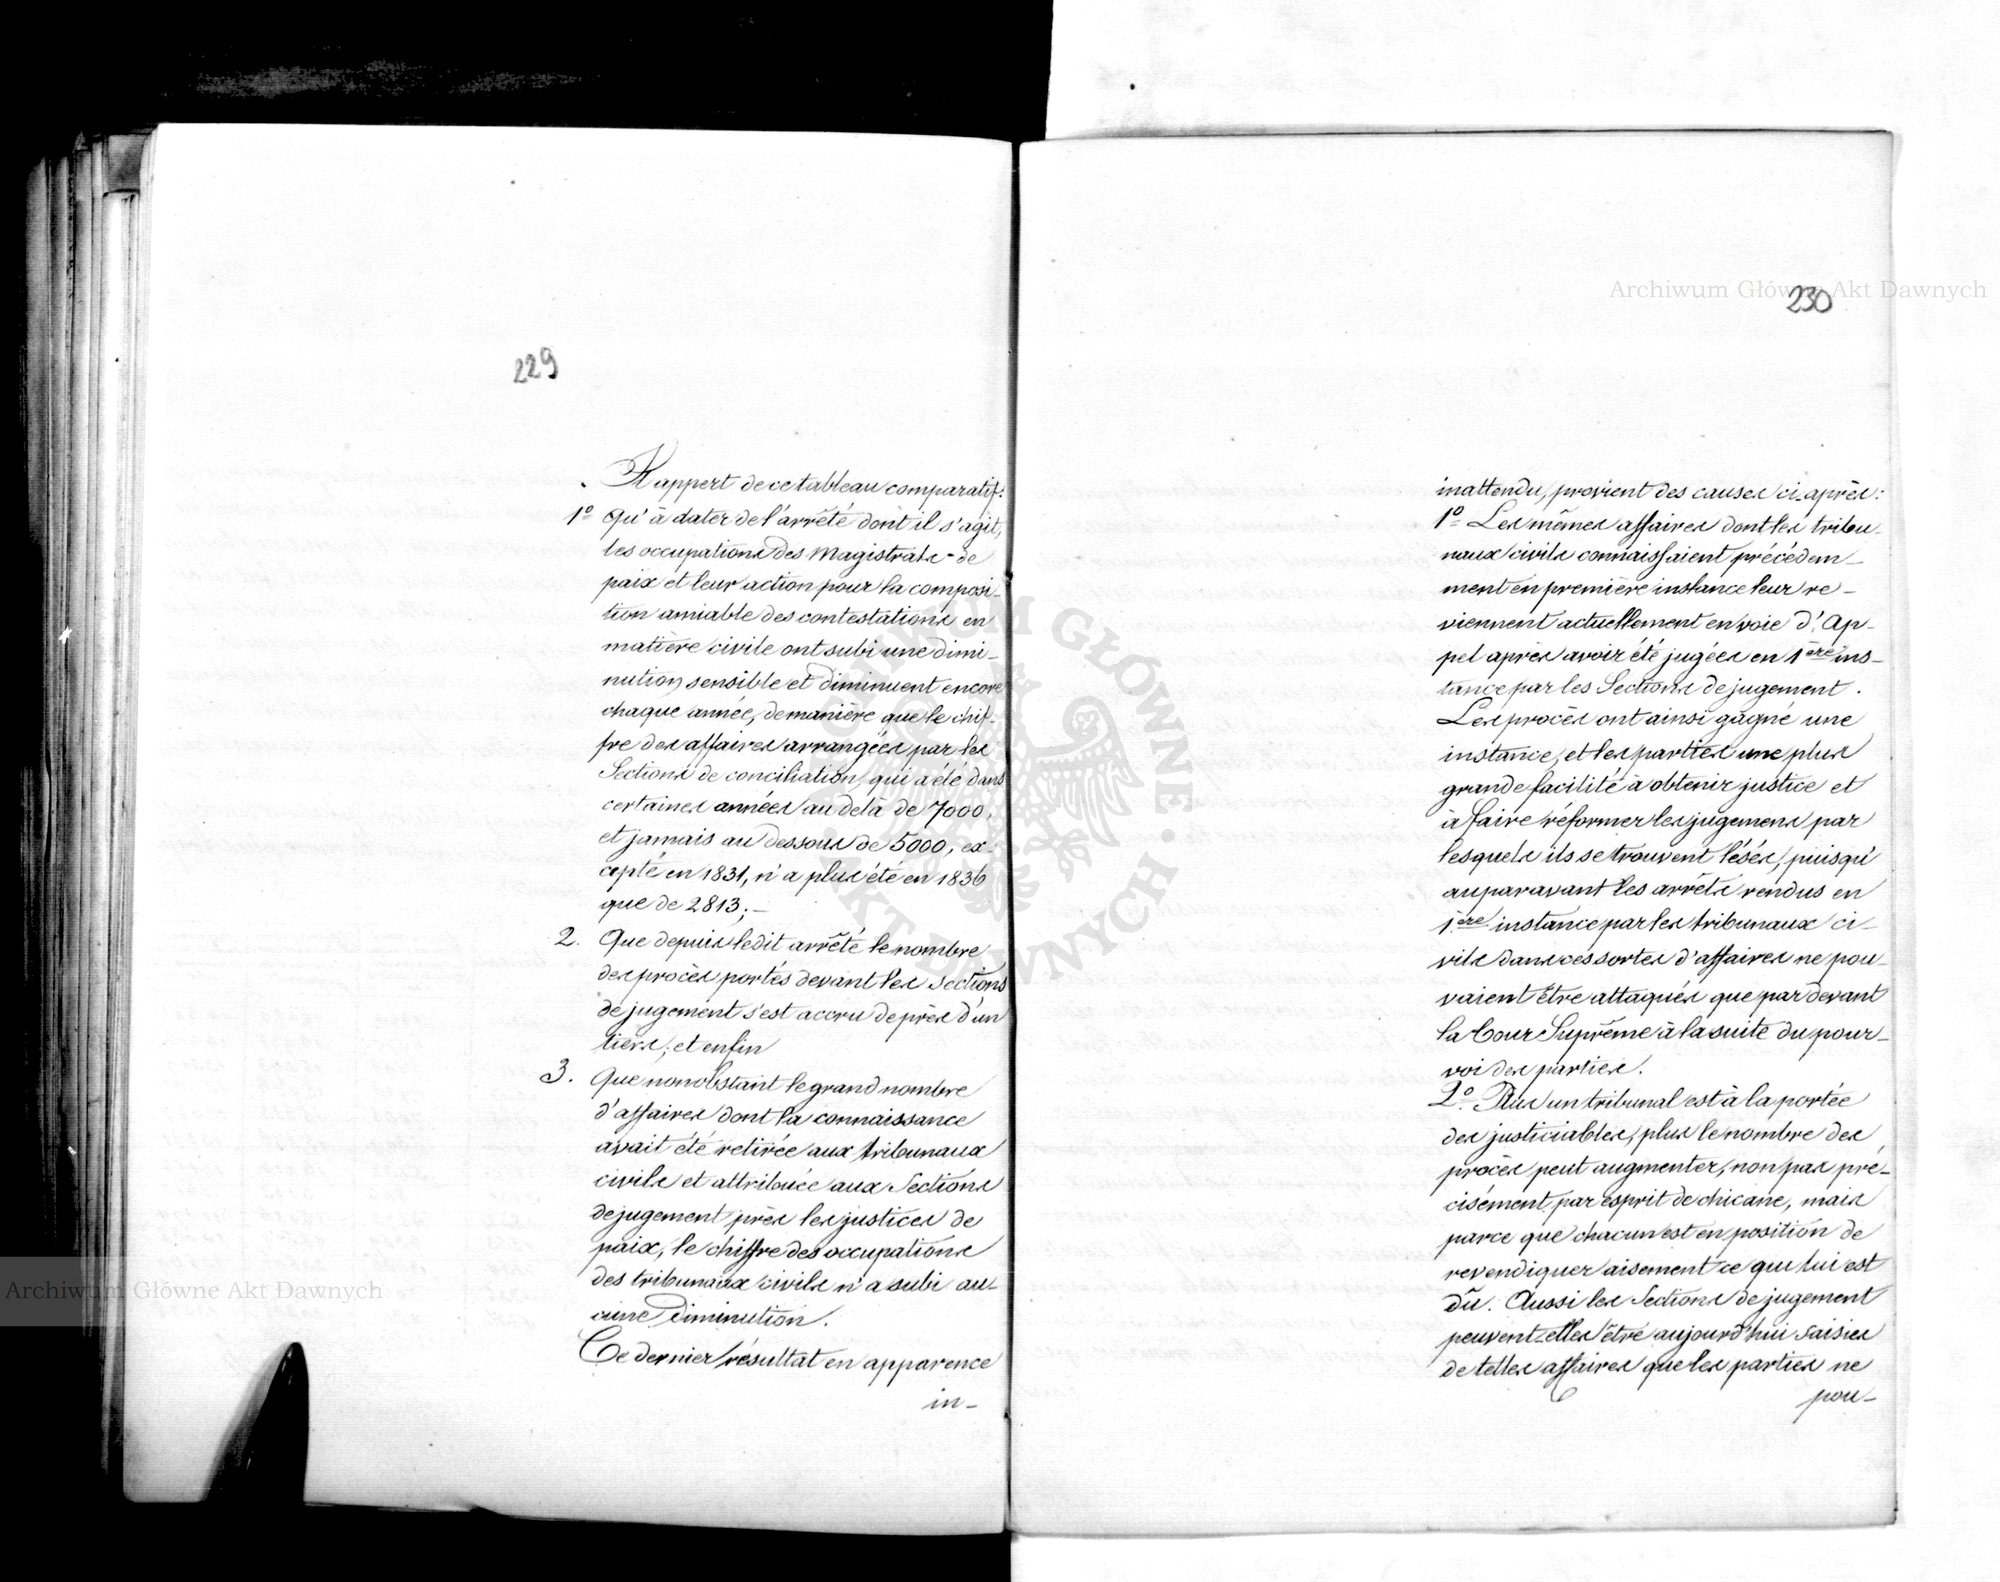 229
Il appert de ce tableau comparatif:
1º Qu'à dater de l'arrêté dont il s'agit,
les occupations des Magistrats-de
paix et leur action pour la composi-
tion amiable des contestations en
matière civile ont subi une dimi-
nution sensible et diminuent encore
chaque année, de manière que le chif-
fre des affaires arrangées par les
Sections de conciliation, qui a été dans
certaines années au delà de 7000,
et jamais au dessous de 5000, ex-
cepté en 1831, n'a plus été en 1836
que de 2813;-
2. Que depuis ledit arrêté le nombre
des procès portés devant les Sections
de jugement s'est accru de près d'un
tiers; et enfin
3. Que nonobstant le grand nombre
d'affaires dont la connaissance
avait été retirée aux tribunaux
civils et attribuée aux Sections
de jugement près les justices de
paix, le chiffre des occupations
des tribunaux civils n'a subi au-
cune diminution.
Ce dernier résultat en apparence
in-
230
inattendu, provient des causes ci-après:
1º Les mêmes affaires dont les tribu-
naux civils connaissaient précédem-
ment en première instance leur re-
viennent actuellement en voie d'Ap-
pel après avoir été jugées en 1ère ins-
tance par les Sections de jugement.
Les procès ont ainsi gagné une
instance, et les parties une plus
grande facilité à obtenir justice et
à faire réformer les jugemens par
lesquels ils se trouvent lésés, puisqu'
auparavant les arrêts rendus en
1ère instance par les tribunaux ci-
vils dans ces sortes d'affaires ne pou-
vaient être attaqués que par devant
la Cour Suprême à la suite du pour-
voi des parties.
2º Plus un tribunal est à la portée
des justiciables, plus le nombre des
procès peut augmenter, non pas pré-
cisément par esprit de chicane, mais
parce que chacun est en position de
revendiquer aisement ce qui lui est
dû. Aussi les Sections de jugement
peuvent-elles être aujourd'hui saisies
de telles affaires que les parties ne
pou-
Archiwum Główne Akt Dawnych
Archiwum Główne Akt Dawnych
ARCHIWUM GŁÓWNE AKT DAWNYCH